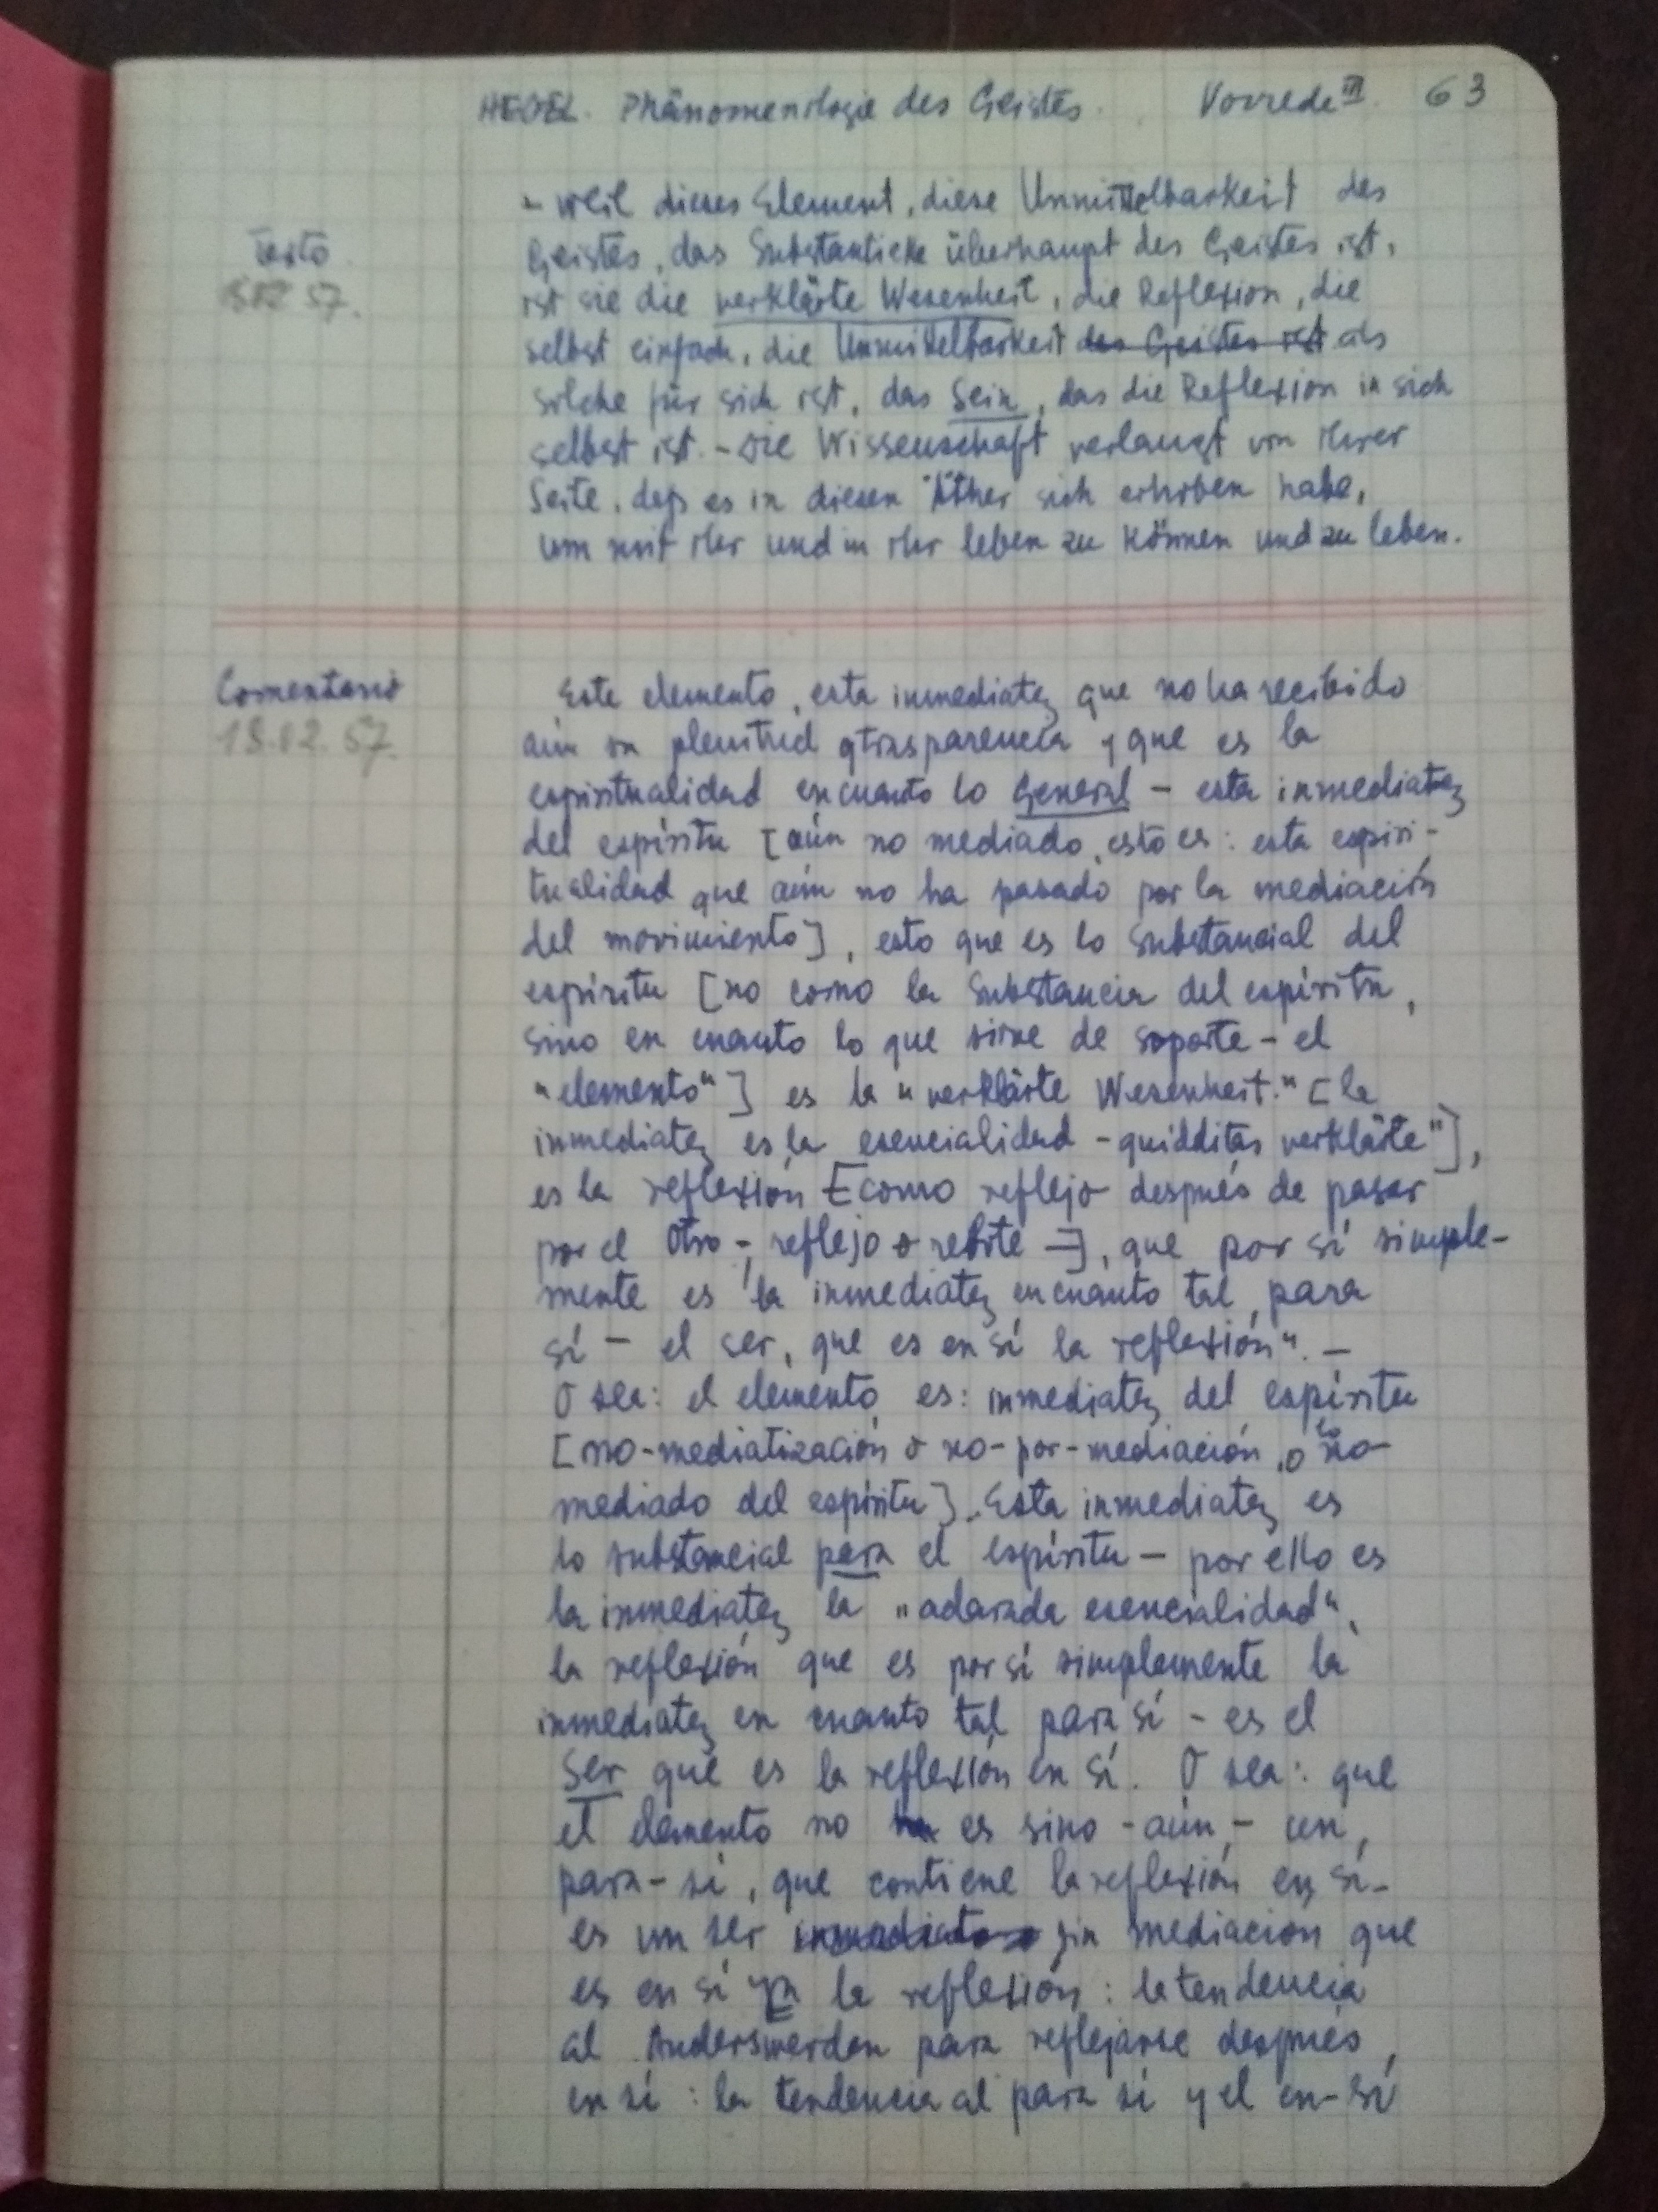 HEGEL. Phänomenologie des Geistes. Vorrede III. 63
- weil dieses Element, diese Unmittelbarkeit des
Texto
Geistes, das Substantielle überhaupt des Geistes ist,
ist sie die verklärte Wesenheit, die Reflexion, die
selbst einfach, die Unmittelbarkeit des Geistes ist als
solche für sich ist, das Sein, das die Reflexion in sich
selbst ist. - Die Wissenschaft verlangt von ihrer
Seite, daß es in diesen Äther sich erhoben habe,
um mit ihr und in ihr leben zu können und zu leben.
Comentario
13.02.57.
Este elemento, esta inmediatez que no ha recibido
aún su plenitud y trasparencia y que es la
espiritualidad en cuanto lo General - esta inmediatez
del espíritu [aún no mediado, esto es: esta espiri-
tualidad que aún no ha pasado por la mediación
del movimiento], esto que es lo substancial del
espíritu [no como la substancia del espíritu,
sino en cuanto lo que sirve de soporte - el
"elemento"] es la "verklärte Wesenheit." [la
inmediatez es la esencialidad - quidditas verklärte"],
es la reflexión [como reflejo después de pasar
por el Otro -, reflejo o rebote -], que por sí simple-
mente es la inmediatez en cuanto tal, para
sí - el ser, que es en sí la reflexión". -
O sea: el elemento es: inmediatez del espíritu
[no-mediatización o no-por-mediación, o lo no-
mediado del espíritu]. Esta inmediatez es
lo substancial para el espíritu - por ello es
la inmediatez la "aclarada esencialidad",
la reflexión que es por sí simplemente la
inmediatez en cuanto tal para sí - es el
Ser que es la reflexión en sí. O sea: que
el elemento no es sino - aún - un
para-sí, que contiene la reflexión en sí -
es un ser inmediato sin mediación que
es en sí ya la reflexión: la tendencia
al Anderswerden para reflejarse después,
en sí: la tendencia al para sí y el en-sí